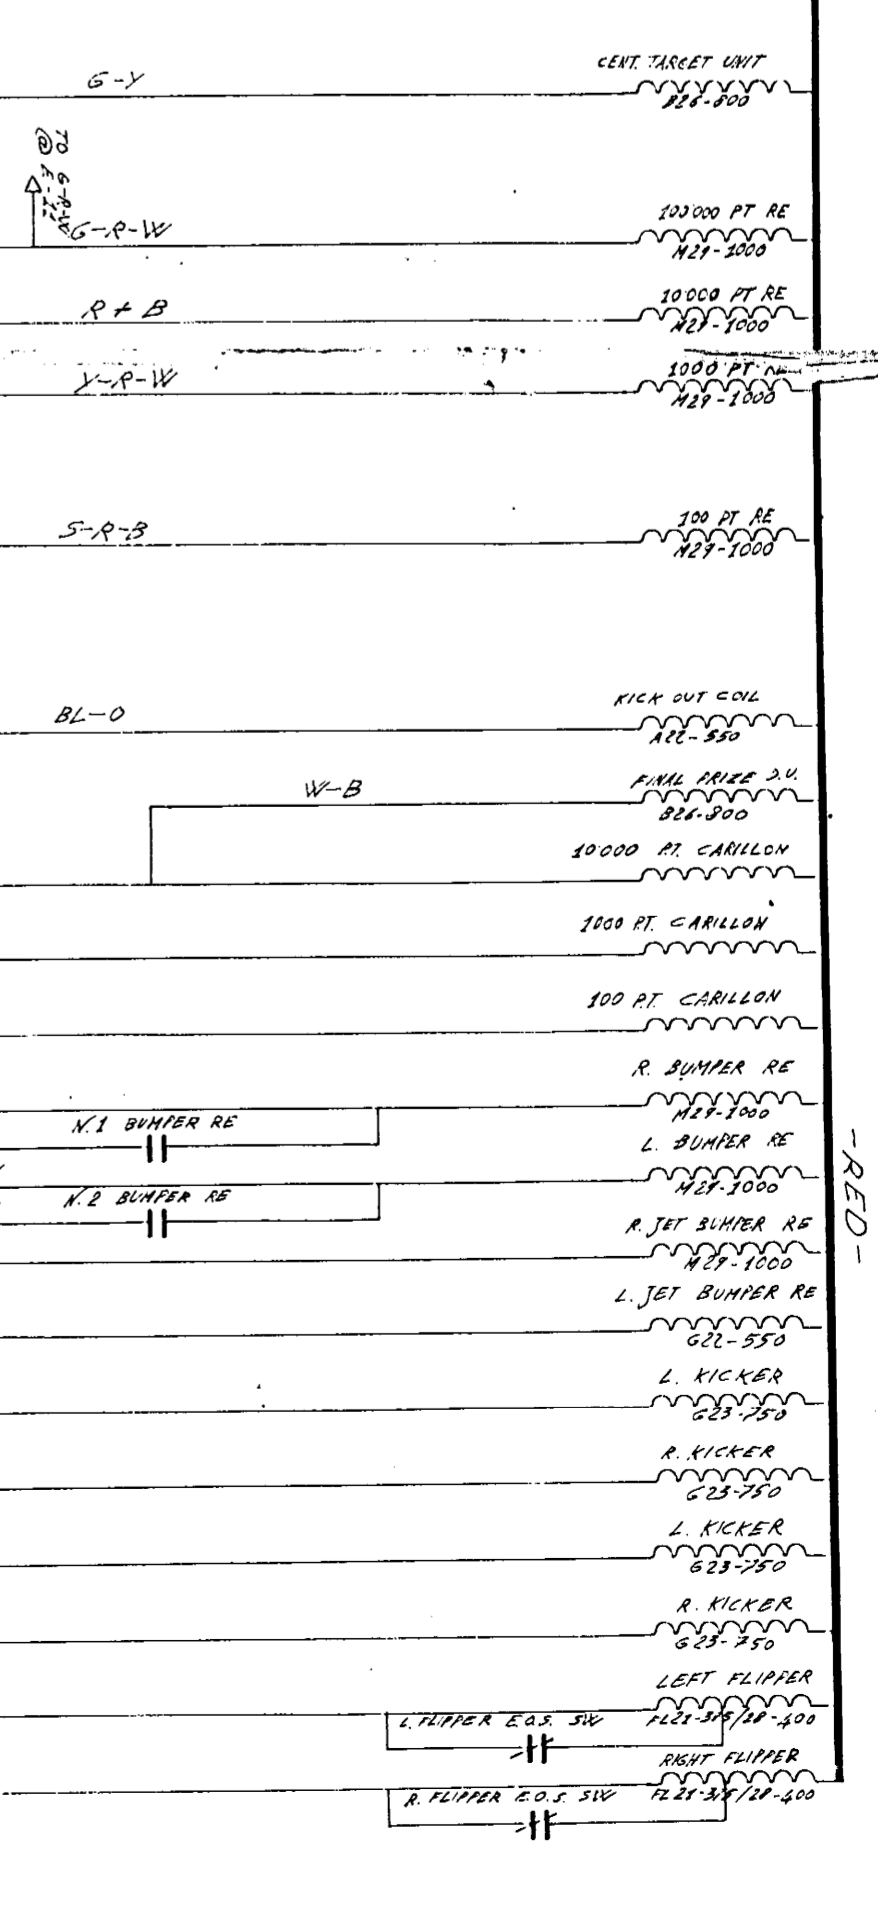 CENT. TARGET UNIT
G-Y
B26-800
TO G-R-W
@
100'000 PT RE
G-R-W
M29-1000
10'000 PT RE
R+B
M29-1000
1000 PT
Y-R-W
M29-1000
100 PT RE
S-R-B
M29-1000
KICK OUT COIL
BL-O
A22-550
FINAL PRIZE S.U.
W-B
B26-800
10'000 PT. CARILLON
1000 PT. CARILLON
100 PT. CARILLON
R. BUMPER RE
M29-1000
N.1 BUMPER RE
L. BUMPER RE
M29-1000
N.2 BUMPER RE
R. JET BUMPER RE
M29-1000
L. JET BUMPER RE
G22-550
-RED-
L. KICKER
G23-750
R. KICKER
G23-750
L. KICKER
G23-750
R. KICKER
G23-750
LEFT FLIPPER
FL21-375/28-400
L. FLIPPER E.O.S. SW
RIGHT FLIPPER
FL21-375/28-400
R. FLIPPER E.O.S. SW